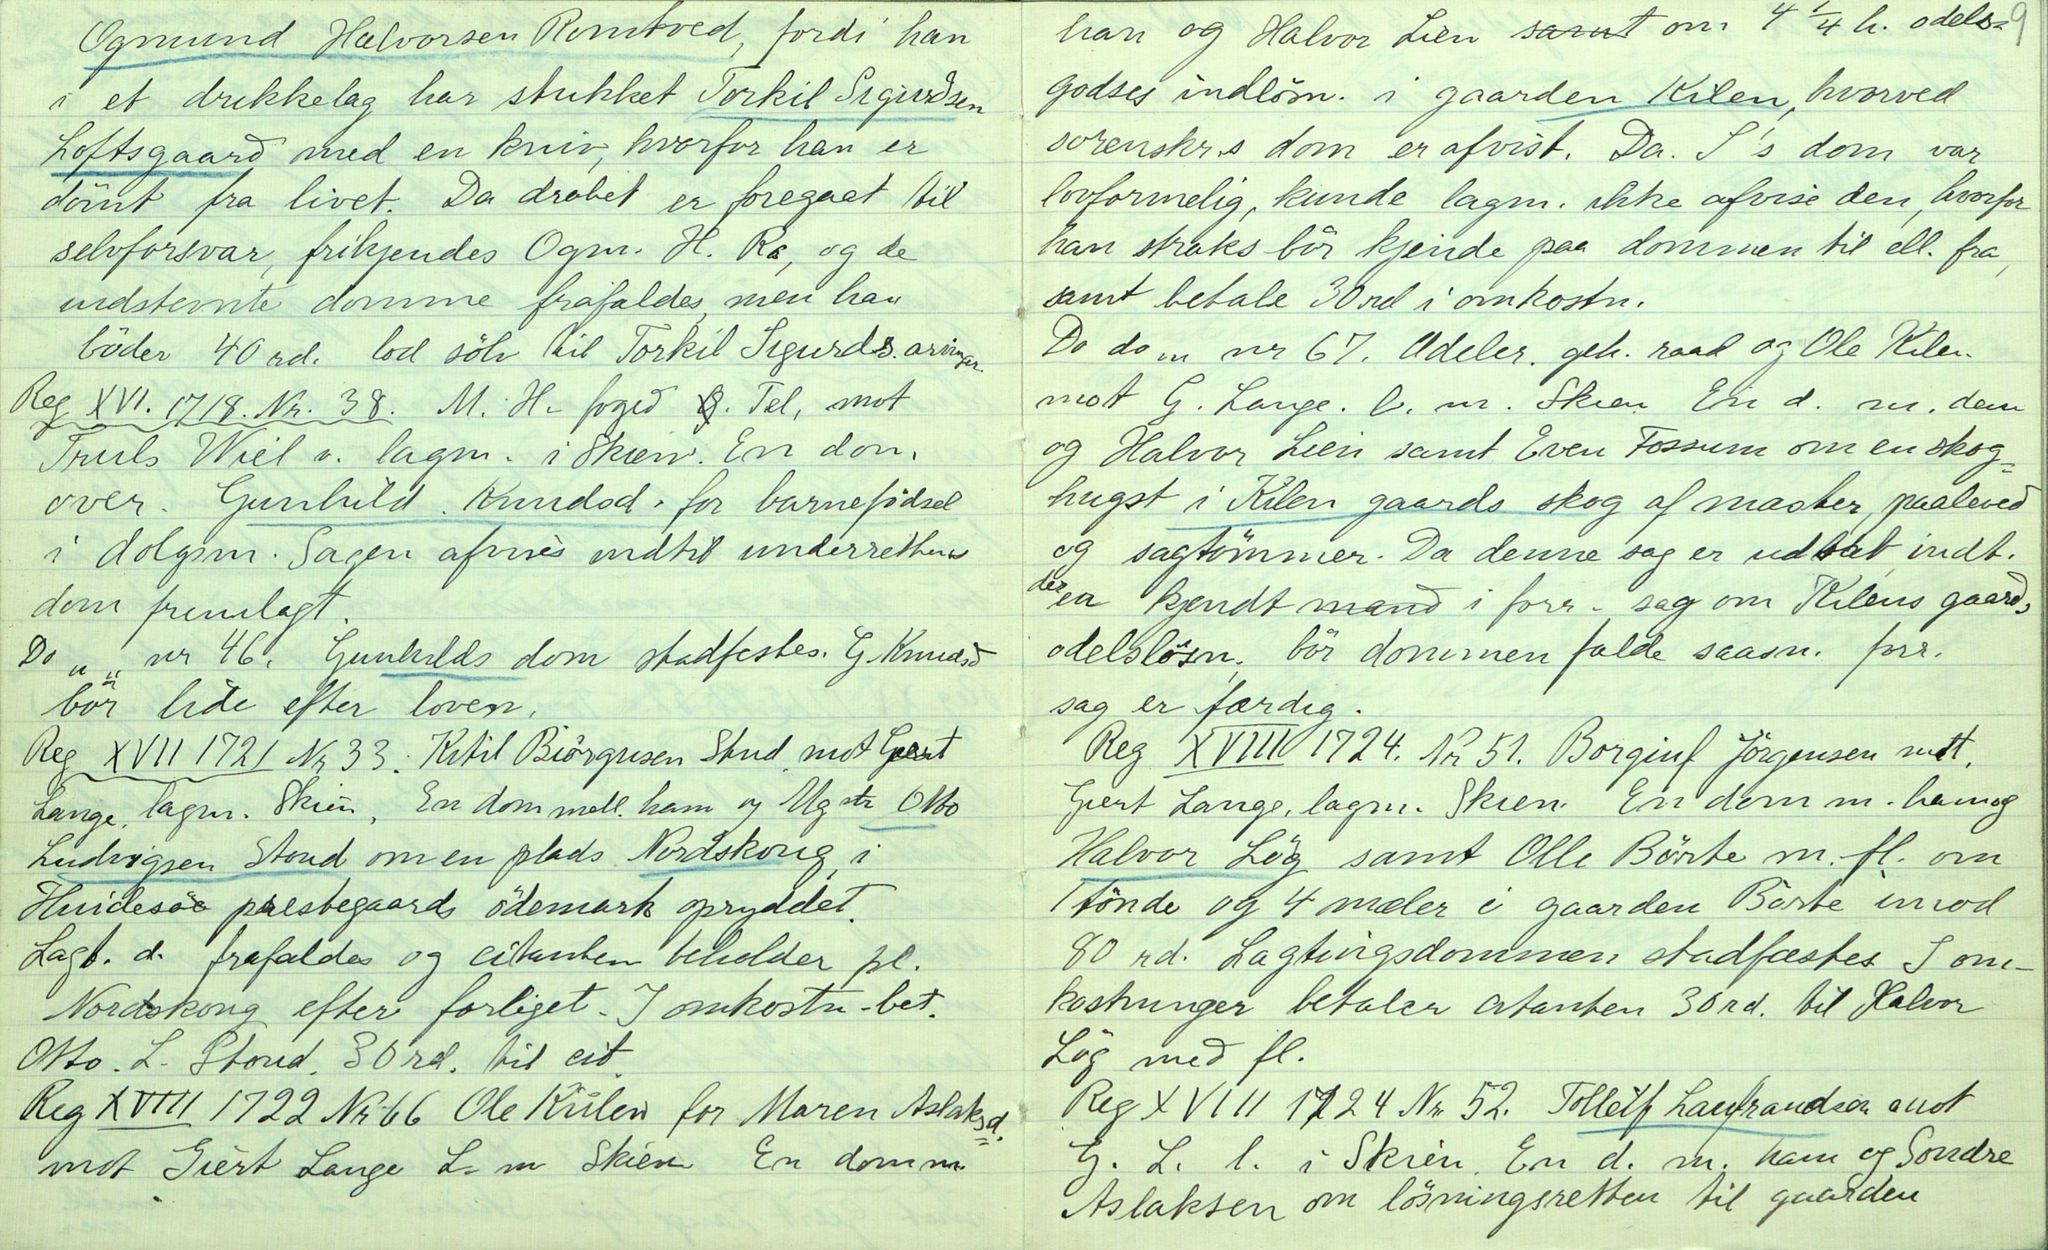 Ogmund Halvorsen Romtved, fordi han
i et drikkelag har stukket Torkil Sigurdsen
Loftsgaard med en kniv, hvorfor han er
dömt fra livet. Da drabet er foregaaet til
selvforsvar, frikjendes Ogm. H. Ro, og de
indstevnte domme frafaldes, men han
böder 40 rd. lod sölv til Torkil Sigurds. arvinger.
Reg XVI. 1718. Nr. 38. M. H. foged Tel, mot
Truls Wiel v. lagm. i Skien. En dom
over Gunhild Knudsd. for barnefödsel
i dolgsm. Sagen afvises indtil underrettens
dom fremlagt.
Do " " nr 46. Gunhilds dom stadfestes. G. Knudsd
bör lide efter loven.
Reg XVII 1721 Nr 33. Kitil Biörgusen Stud mot Geert
Lange, lagm. Skien, En dom mell. ham og Mgstr Otto
Ludvigsen Stoud om en plads Nordskoug i
Huidesöe prestegaards ödemark opryddet.
Lagt. d. frafaldes og citanten beholder pl.
Nordskoug efter forliget. I omkostn. bet.
Otto. L. Stoud. 30 rd. til cit.
Reg XVIII 1722 Nr 66 Ole Kiilen for Maren Aslaksd.
mot Giert Lange L. m Skien En dom m
9
han og Halvor Lien samt om 4 1/4 h. odels=
godses indlösn. i gaarden Kilen, hvorved
sorenskr.s dom er afvist. Da. S's dom var
lovformelig, kunde lagm. ikke afvise den, hvorfor
han straks bör kjende paa dommen til ell. fra,
samt betale 30 rd i omkostn.
Do do " nr 67. Adeler. geh. raad og Ole Kilen
mot G. Lange. l. m. Skien En d. m. dem
og Halvor Lien samt Even Fossum om en skog=
hugst i Kilen gaards skog af master, paaleved
og sagtömmer. Da denne sag er udsat indt.
der er kjendt mand i forr. sag om Kilens gaards
odelslösn. bör dommen falde saasn. forr.
sag er færdig.
Reg XVIII 1724. Nr 51. Borginf Jörgensen mot
Giert Lange, lagm. Skien En dom m. ham og
Halvor Lög samt Olle Börte m. fl. om
1 tönde og 4 mæler i gaarden Börte imod
80 rd. Lagtingsdommen stadfæstes I om-
kostninger betaler citanten 30 rd. til Halvor
Lög med fl.
Reg XVIII 1724 Nr 52. Tolleif Laufrandsen mot
G. L. l. i Skien. En d. m. ham og Sondre
Aslaksen om lösningsretten til gaarden